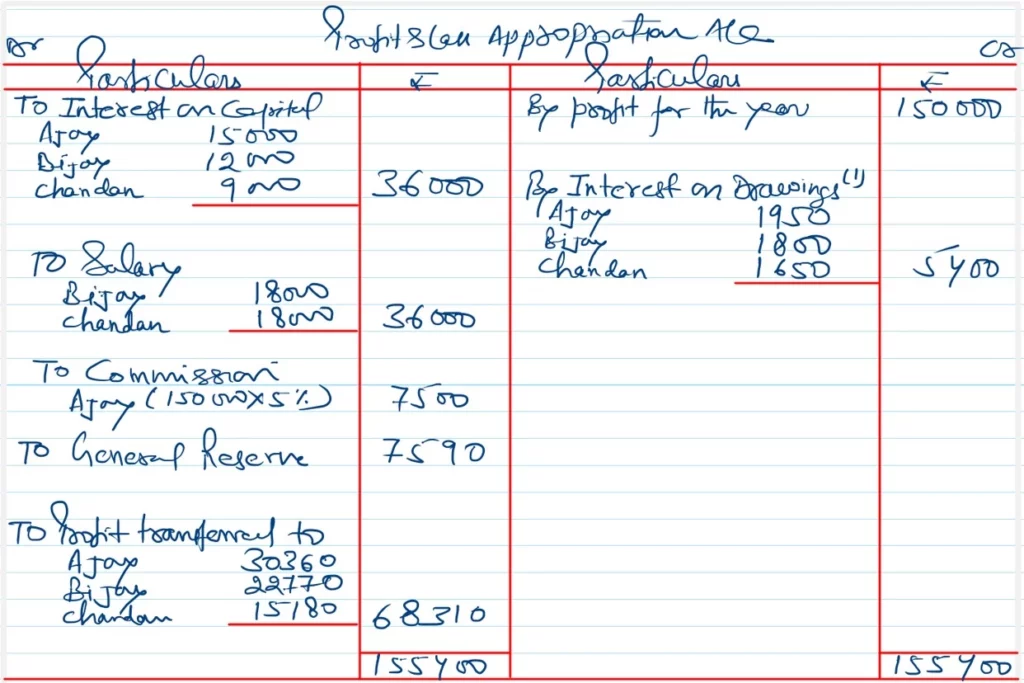 Profit & Loss Appropriation A/c
Dr Cr
Particulars ₹ Particulars ₹
To Interest on Capital By profit for the year 150000
Ajay 15000
Bijay 12000
Chandan 9000 36000 By Interest on Drawings(1)
Ajay 1950
Bijay 1800
To Salary Chandan 1650 5400
Bijay 18000
Chandan 18000 36000
To Commission
Ajay (150000x5%) 7500
To General Reserve 7590
To Profit transferred to
Ajay 30360
Bijay 22770
Chandan 15180 68310
155400 155400